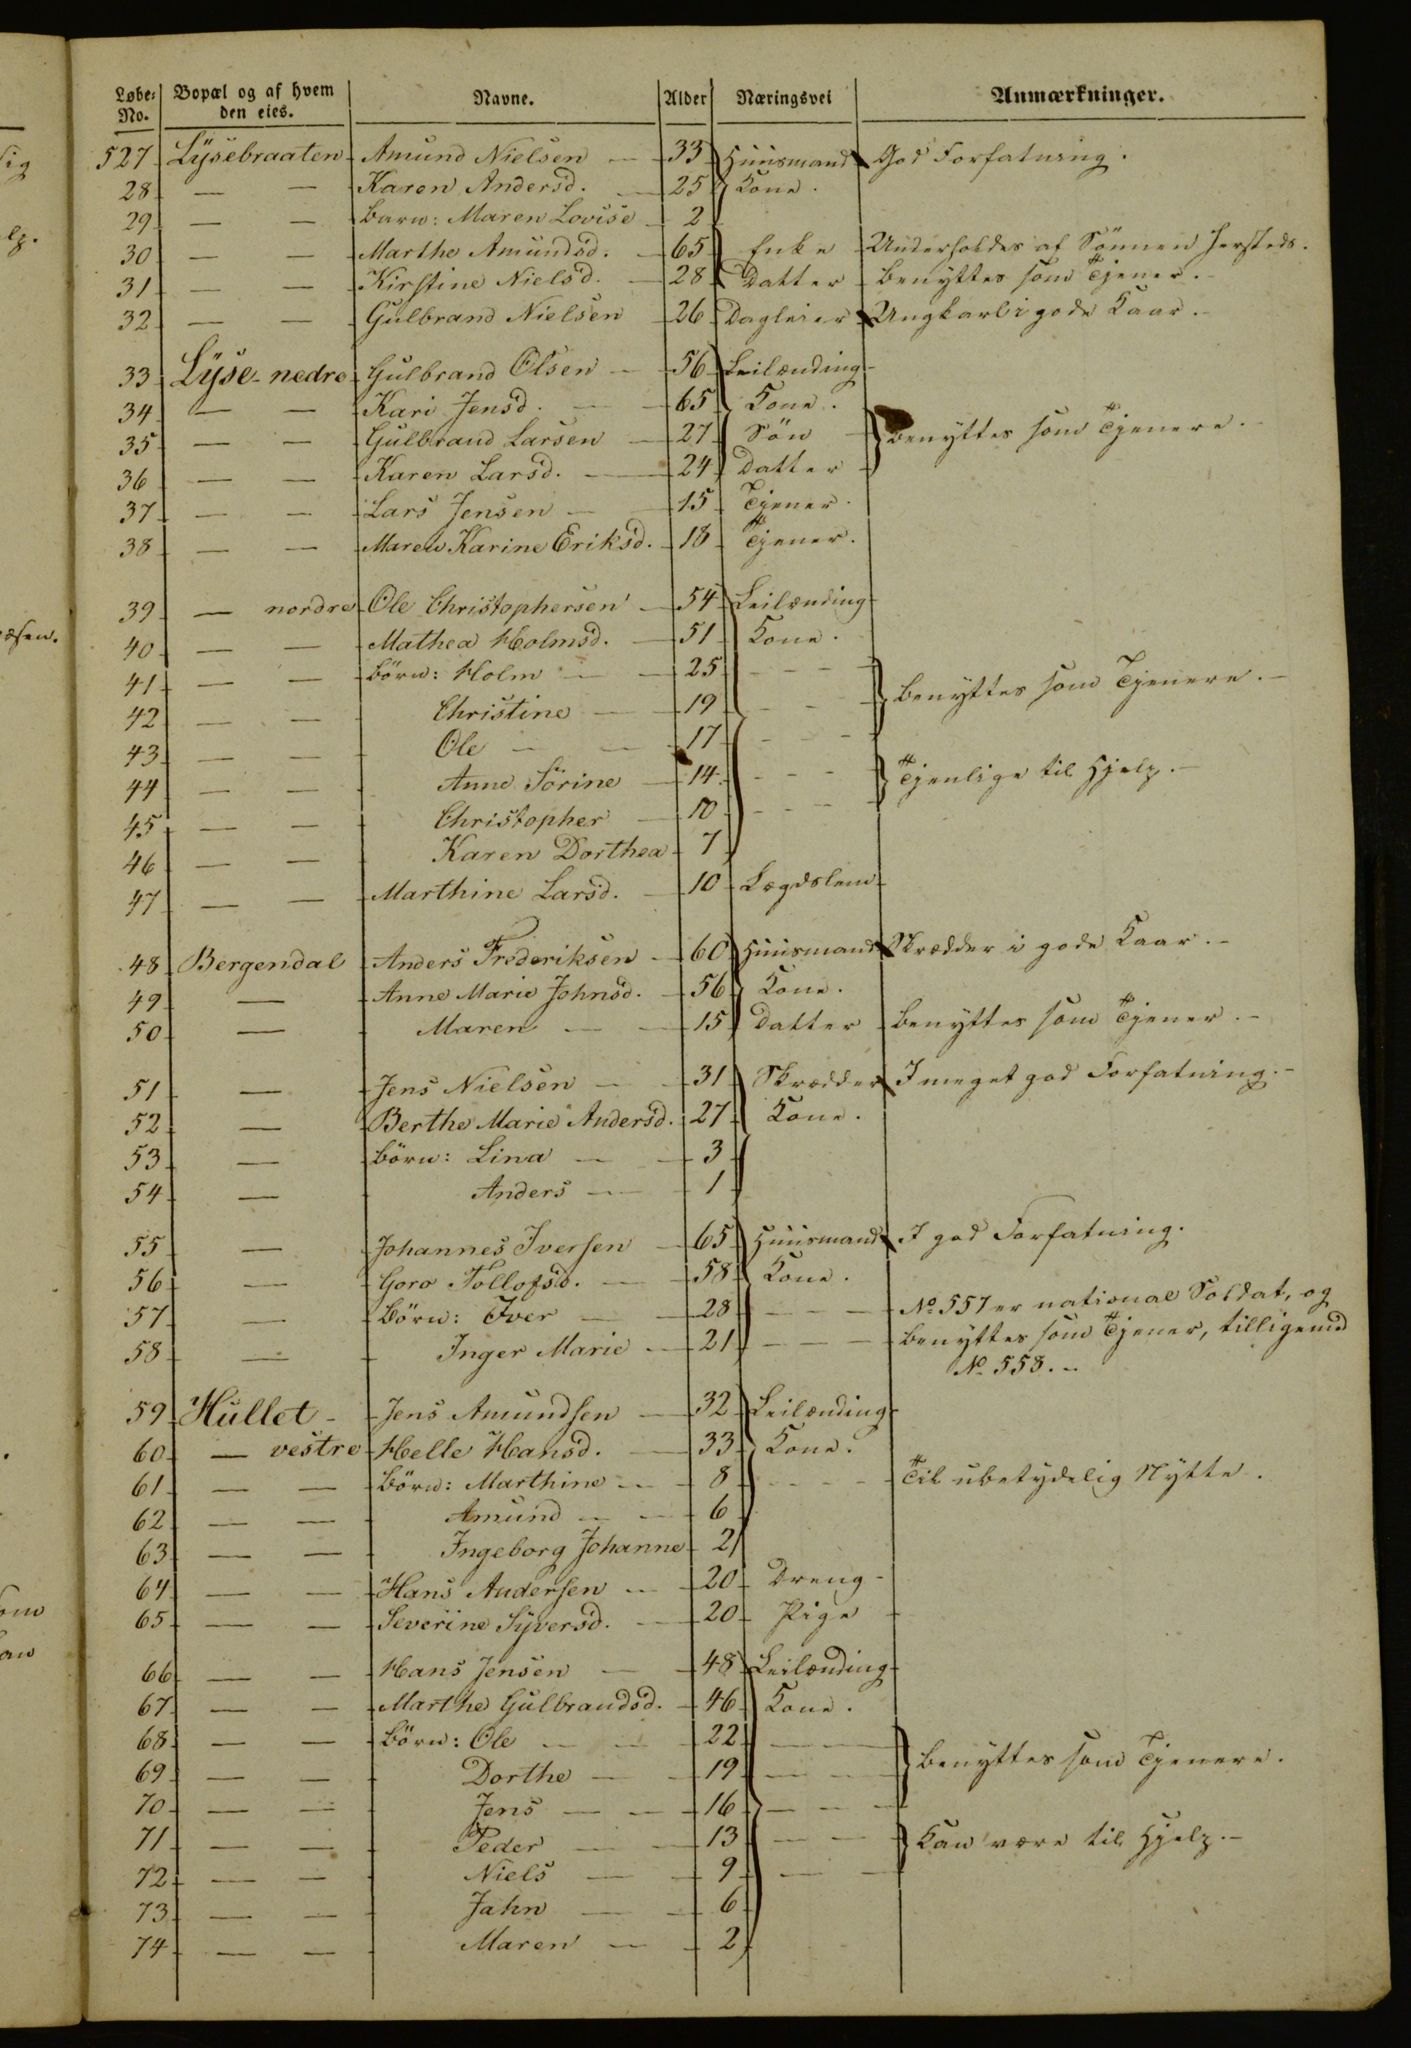 Løbe-No. Bopæl og af hvem den eies. Navne. Alder Næringsvei Anmærkninger.
527 Lÿsebraaten Amund Nielsen — 33 Huusmand God Forfatning.
28 — — Karen Andersd. — 25 Kone.
29 — — Barn: Maren Lovise 2
30 — — Marthe Amundsd. — 65 Enke Underholdes af Sönnen hersteds.
31 — — Kirstine Nielsd. — 28 Datter benyttes som Tjener.
32 — — Gulbrand Nielsen 26 Dagleier Ungkarl i gode Kaar.
33 Lÿse nedre Gulbrand Olsen — 56 Leilænding
34 — — Kari Jensd. — 65 Kone.
35 — — Gulbrand Larsen — 27 Sön benyttes som Tjenere.
36 — — Karen Larsd. — 24 Datter
37 — — Lars Jensen — 15 Tjener.
38 — — Maren Karine Eriksd. 18 Tjener.
39 — nordre Ole Christophersen — 54 Leilænding
40 — — Mathea Holmsd. — 51 Kone.
41 — — Börn: Holm — — 25 - - - benyttes som Tjenere.
42 — — Christine — 19 - - -
43 — — Ole — — 17 - - -
44 — — Anne Sörine — 14 - - - Tjenlige til Hjelp.
45 — — Christopher — 10 - - -
46 — — Karen Dorthea 7
47 — — Marthine Larsd. — 10 Lægdslem
48 Bergendal Anders Frederiksen — 60 Huusmand Skrædder i gode Kaar.
49 — Anne Marie Johnsd. — 56 Kone.
50 — Maren — — 15 Datter benyttes som Tjener.
51 — Jens Nielsen — 31 Skrædder I meget god Forfatning.
52 — Berthe Marie Andersd. 27 Kone.
53 — Börn: Lina — — 3
54 — Anders — 1
55 — Johannes Iversen — 65 Huusmand I god Forfatning.
56 — Goro Tollofsd. — 58 Kone.
57 — Börn: Iver — — 28 — — — No 557 er national Soldat, og
58 — Inger Marie — 21 — — — benyttes som Tjener, tilligemed
No 558.
59 Hullet Jens Amundsen — 32 Leilænding
60 — vestre Helle Hansd. — 33 Kone.
61 — — Börn: Marthine — 8 - - - Til ubetydelig Nytte.
62 — — Amund — — 6
63 — — Ingeborg Johanne 2
64 — — Hans Andersen — 20 Dreng
65 — — Severine Syversd. — 20 Pige
66 — — Hans Jensen — 48 Leilænding
67 — — Marthe Gulbrandsd. 46 Kone.
68 — — Börn: Ole — — 22 — — benyttes som Tjenere.
69 — — Dorthe — 19 — — —
70 — — Jens — — 16 — — —
71 — — Peder — — 13 — — Kan være til Hjelp.
72 — — Niels — — 9 — —
73 — — Jahn — — 6
74 — — Maren — — 2